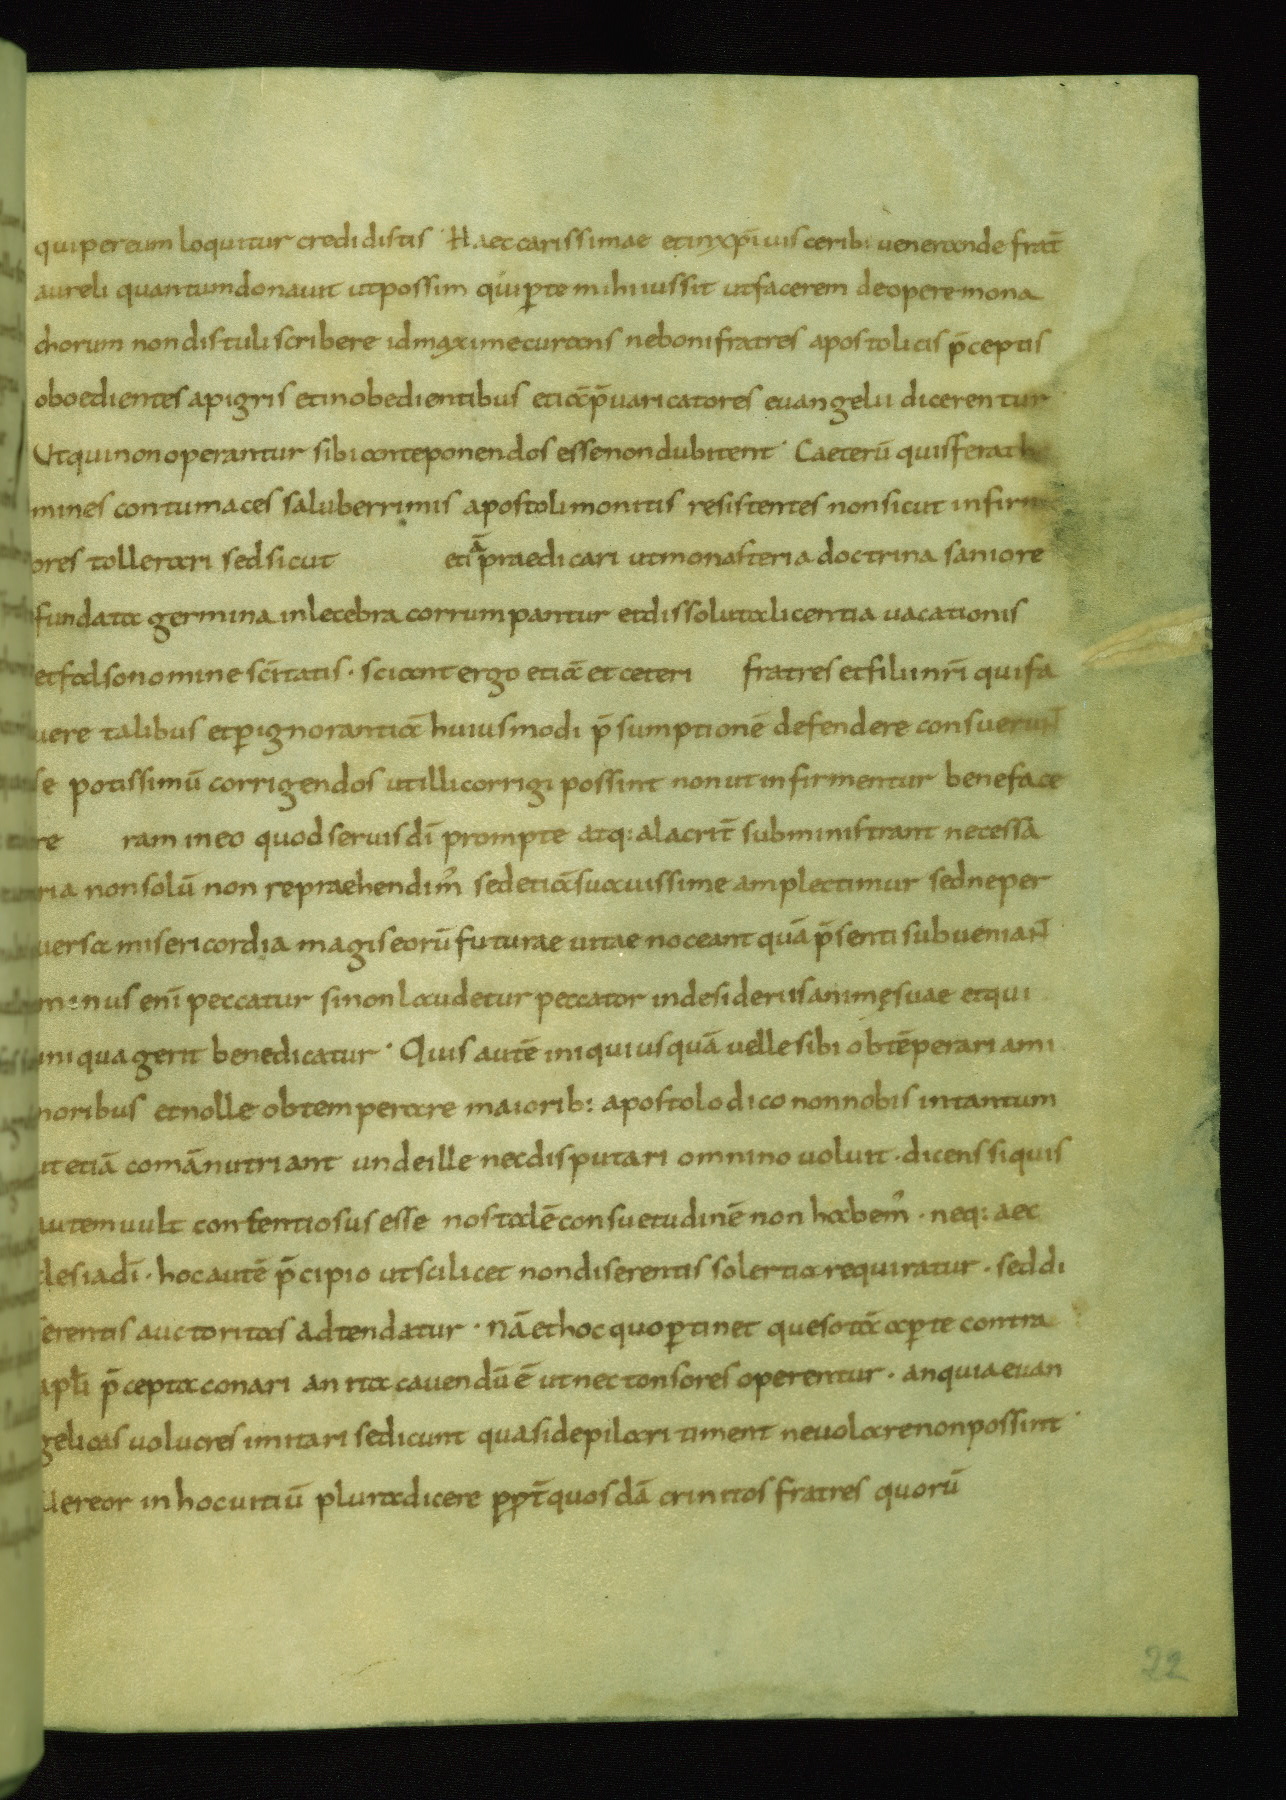 qui per eum loquitur credidistis · Haec carissimae et in xp̄i uisceribus uenerande frat̄
aureli quantum donauit ut possim qui ꝑ te mihi iussit ut facerem de opere mona
chorum non distuli scribere id maxime curans ne boni fratres apostolicis p̄ceptis
oboedientes a pigris et inobedientibus etiā p̄uaricatores euangelii dicerentur
Ut qui non operantur sibi anteponendos esse non dubitent · Caeterū quis ferat ho
mines contumaces saluberrimis apostoli monitis resistentes non sicut infirmi
ores tollerari sed sicut etiā praedicari ut monasteria doctrina saniore
fundata gemina inlecebra corrumpantur et dissoluta licentia uacationis
et falso nomine sc̄itatis · sciant ergo etiā et ceteri fratres et filii nr̄i qui fa
uere talibus et ꝑ ignorantiā huiusmodi p̄sumptionē defendere consuerunt
se potissimū corrigendos ut illi corrigi possint non ut infirmentur beneface
re ram in eo quod seruis dī prompte atq: alacrit̄ subministrant necessa
ria non solū non repraehendim᾽ sed etiā suauissime amplectimur sed ne per
uersa misericordia magis eorū futurae uitae noceant quā p̄senti subueniant
minus enī peccatur si non laudetur peccator in desideriis animę suae et qui
iniqua gerit benedicatur · Quis autē iniquius quā uelle sibi obtēperari a mi
noribus et nolle obtemperare maiorib: apostolo dico non nobis in tantum
ut etiā comā nutriant unde ille nec disputari omnino uoluit · dicens si quis
autem uult contentiosus esse nos talē consuetudinē non habem᾽ · neq: aec
clesia dī · hoc autē p̄cipio ut scilicet non diserentis solertia requiratur · sed di
serentis auctoritas adtendatur · Nā et hoc quo ꝑtinet queso tā aꝑte contra
apl̄i p̄cepta conari an ita cauendū ē ut nec tonsores operentur · an quia euan
gelicas uolucres imitari se dicunt quasi depilari timent ne uolare non possint ·
Uereor in hoc uitiū plura dicere ꝓꝑt̄ quosdā crinitos fratres quorū
22